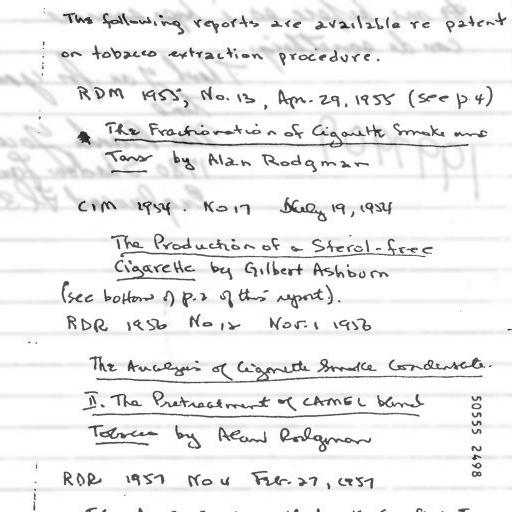 The following reports are available re patent
on tobacco extraction procedure.
RDM 1955, No. 13, Apr. 29, 1955 (see p. 4)
The Fractionation of Cigarette Smoke and
Tars by Alan Rodgman
CIM 1954. No 17 July 19, 1954
The Production of a Sterol-free
Cigarette by Gilbert Ashburn
(see bottom of p. 2 of this report).
RDR 1956 No 12 Nov. 1 1956
The Analysis of Cigarette Smoke Condensate.
II. The Pretreatment of CAMEL blend
Tobacco by Alan Rodgman
RDR 1957 No 4 Feb. 27, 1957
50555 2498